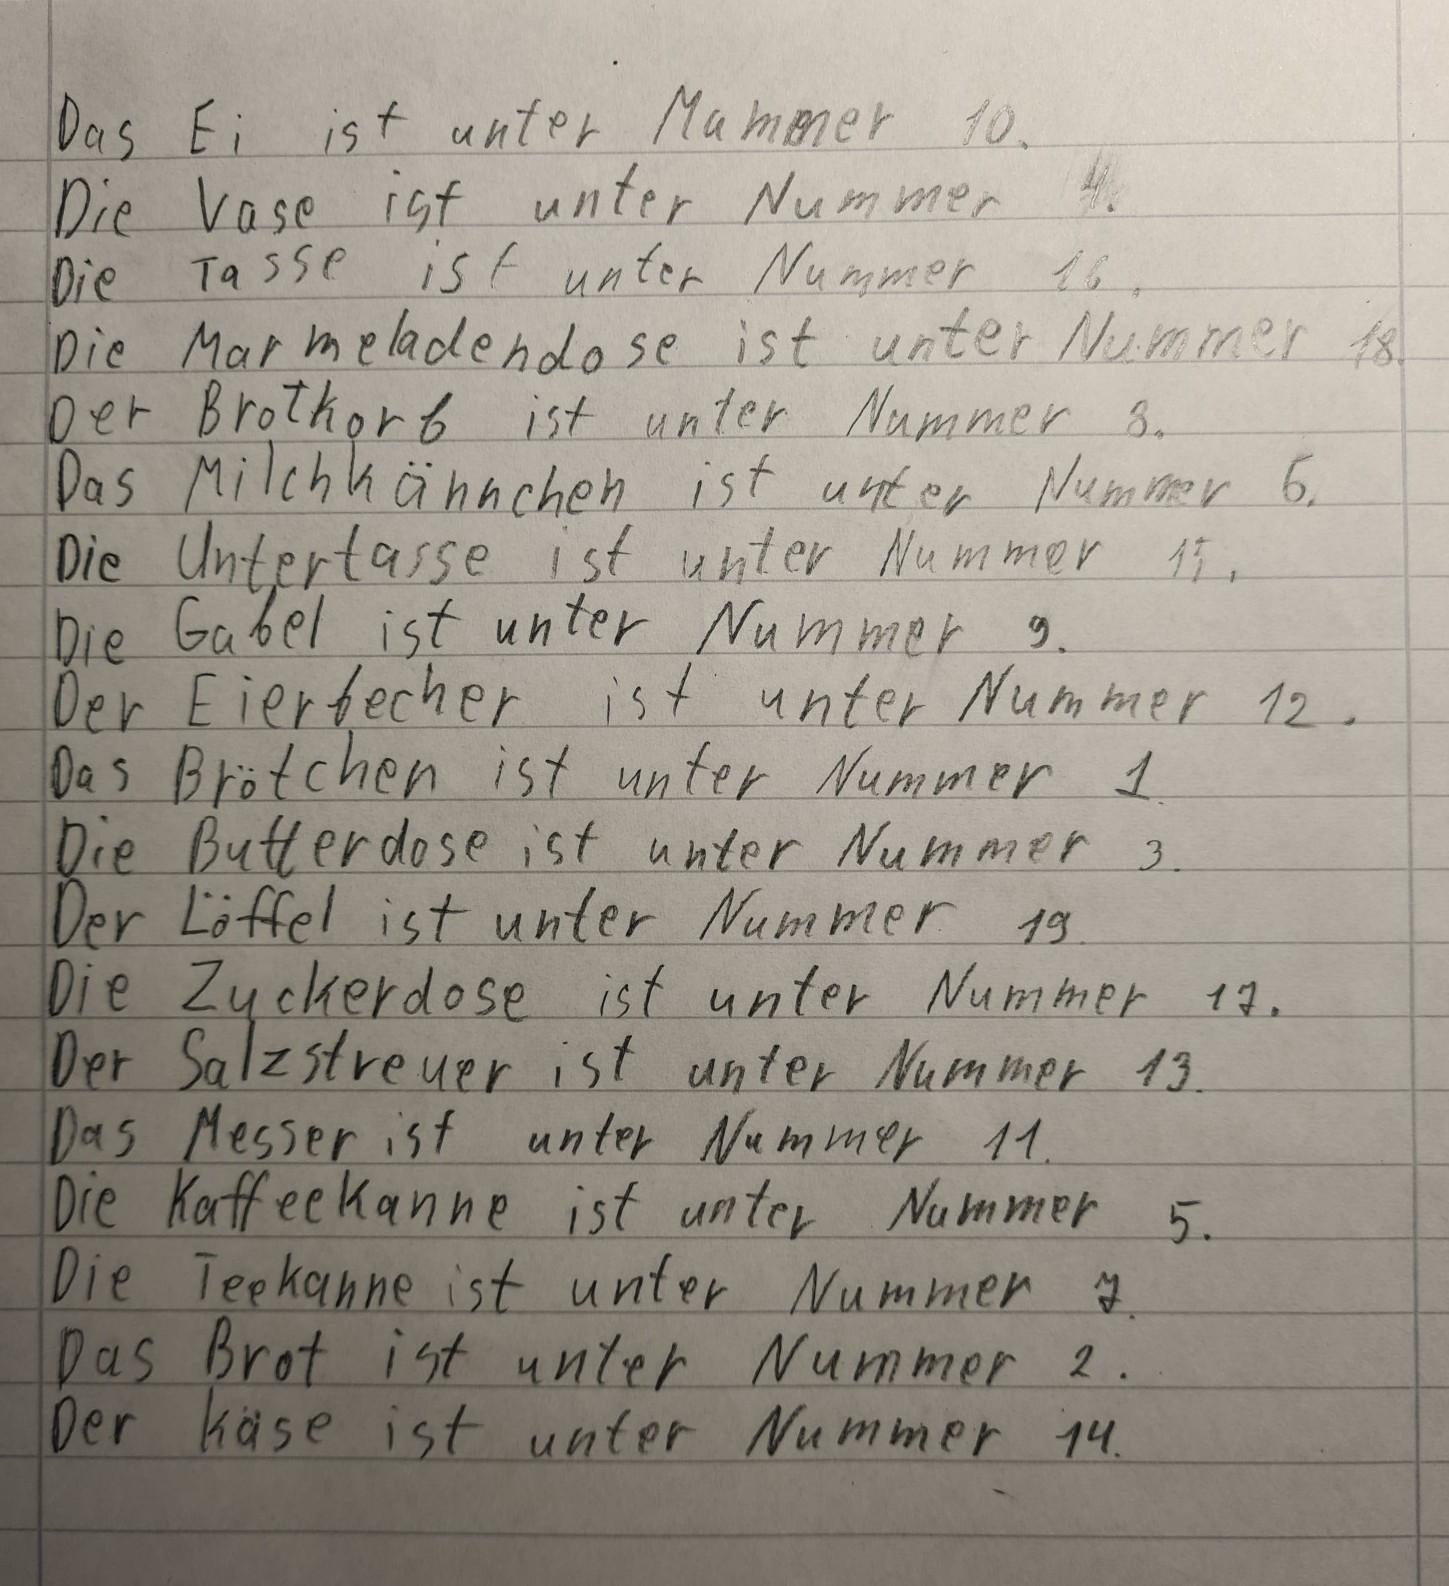 Das Ei ist unter Mammer 10.
Die Vase ist unter Nummer 4.
Die Tasse ist unter Nummer 16.
Die Marmeladendose ist unter Nummer 18.
Der Brotkorb ist unter Nummer 8.
Das Milchkännchen ist unter Nummer 6.
Die Untertasse ist unter Nummer 15.
Die Gabel ist unter Nummer 9.
Der Eierbecher ist unter Nummer 12.
Das Brötchen ist unter Nummer 1.
Die Butterdose ist unter Nummer 3.
Der Löffel ist unter Nummer 19.
Die Zuckerdose ist unter Nummer 17.
Der Salzstreuer ist unter Nummer 13.
Das Messer ist unter Nummer 11.
Die Kaffeekanne ist unter Nummer 5.
Die Teekanne ist unter Nummer 7.
Das Brot ist unter Nummer 2.
Der Käse ist unter Nummer 14.